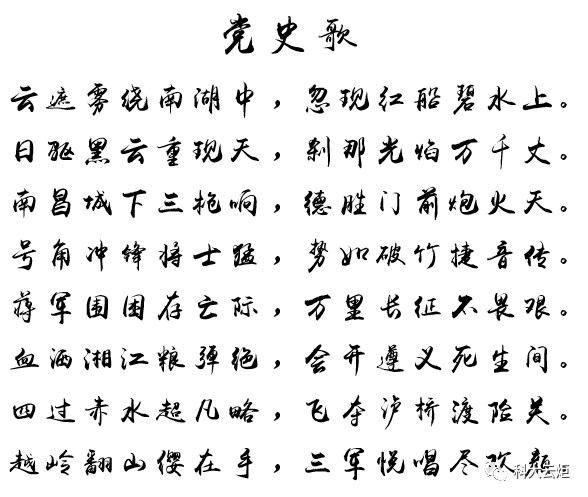 党史歌
云遮雾绕南湖中，忽现红船碧水上。
日驱黑云重现天，刹那光焰万千丈。
南昌城下三枪响，德胜门前炮火天。
号角冲锋将士猛，势如破竹捷音传。
蒋军围困存亡际，万里长征不畏艰。
血洒湘江粮弹绝，会开遵义死生间。
四过赤水超凡略，飞夺泸桥渡险关。
越岭翻山缨在手，三军悦唱尽欢颜
科大云炬